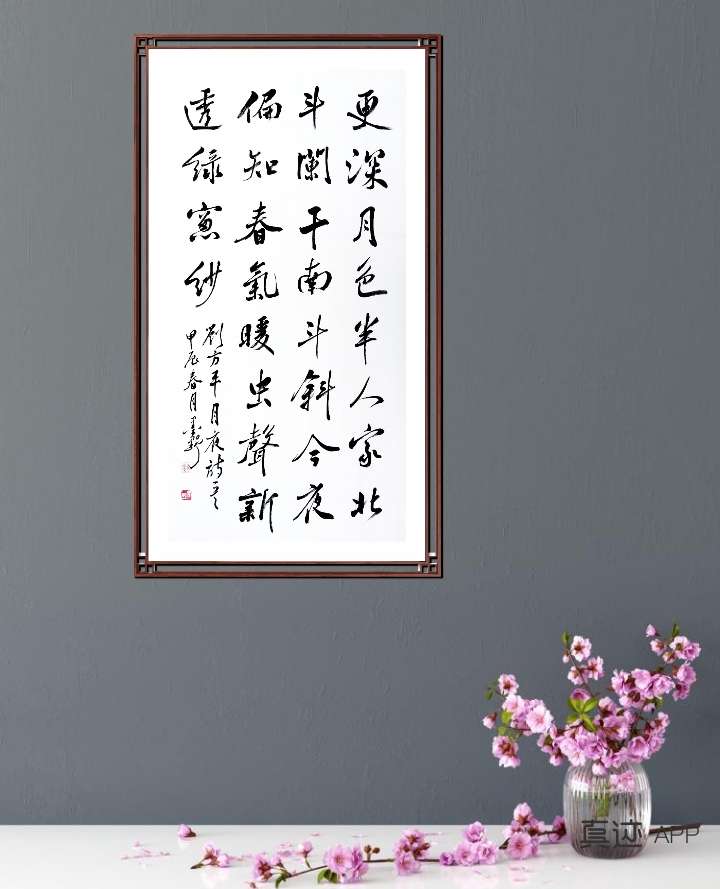 更深月色半人家北
斗闌干南斗斜今夜
偏知春氣暖虫聲新
透綠窻紗
劉方平月夜詩
甲辰春月
真迹 APP